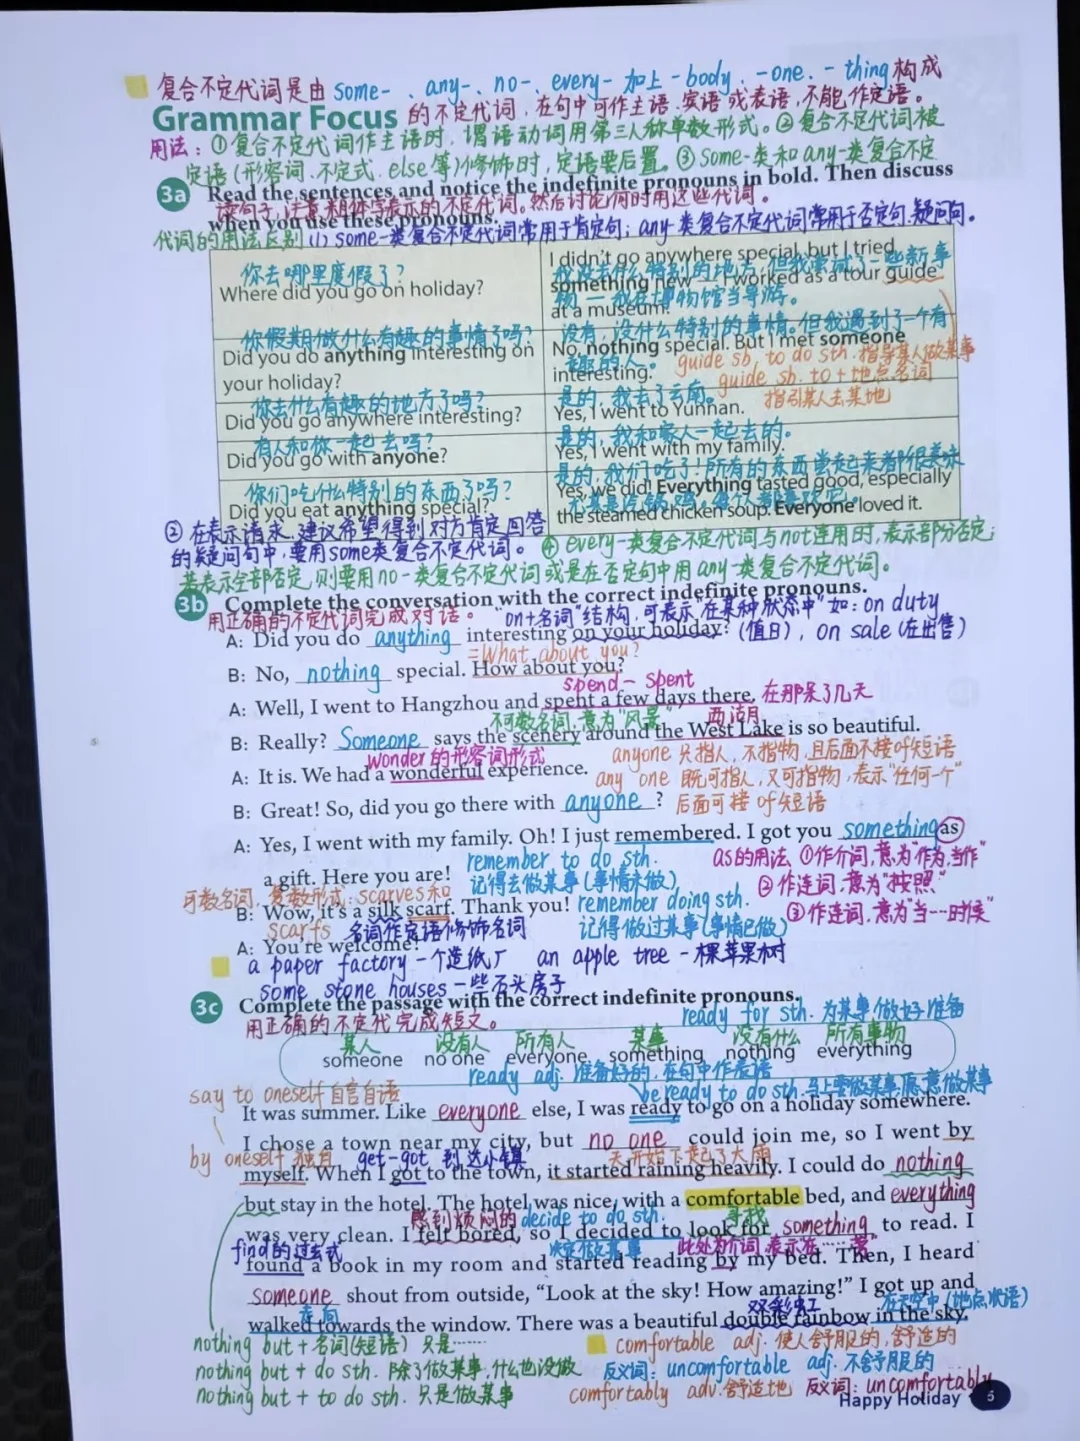 复合不定代词是由 some-、any-、no-、every- 加上 -body、-one、-thing 构成
Grammar Focus 的不定代词，在句中可作主语、宾语或表语，不能作定语。
用法：①复合不定代词作主语时，谓语动词用第三人称单数形式。②复合不定代词被
定语(形容词、不定式、else等)修饰时，定语要后置。③some-类和any-类复合不定
3a Read the sentences and notice the indefinite pronouns in bold. Then discuss
读句子，注意粗体字表示的不定代词。然后讨论何时用这些代词。
when you use these pronouns.
代词的用法区别 (1) some-类复合不定代词常用于肯定句；any-类复合不定代词常用于否定句、疑问句。
你去哪里度假了？
Where did you go on holiday?
I didn't go anywhere special, but I tried
我没去什么特别的地方，但我尝试了一些新事
something new — I worked as a tour guide
物 — 我在博物馆当导游。
at a museum.
你假期做什么有趣的事情了吗？
Did you do anything interesting on
your holiday?
没有，没什么特别的事情。但我遇到了一个有
No, nothing special. But I met someone
趣的人。
interesting.
guide sb. to do sth. 指导某人做某事
guide sb. to + 地点名词
指引某人去某地
你去什么有趣的地方了吗？
Did you go anywhere interesting?
是的，我去了云南。
Yes, I went to Yunnan.
有人和你一起去吗？
Did you go with anyone?
是的，我和家人一起去的。
Yes, I went with my family.
你们吃什么特别的东西了吗？
Did you eat anything special?
是的，我们吃了！所有的东西尝起来都很美味
Yes, we did! Everything tasted good, especially
尤其是汽锅鸡。每个人都喜欢它。
the steamed chicken soup. Everyone loved it.
② 在表示请求、建议希望得到对方肯定回答
的疑问句中，要用some类复合不定代词。
④ every-类复合不定代词与not连用时，表示部分否定；
若表示全部否定，则要用no-类复合不定代词或是在否定句中用any-类复合不定代词。
3b Complete the conversation with the correct indefinite pronouns.
用正确的不定代词完成对话。
"on+名词"结构，可表示"在某种状态中"如：on duty
A: Did you do anything interesting on your holiday?
(值日)，on sale (在出售)
=What about you?
B: No, nothing special. How about you?
spend - spent
A: Well, I went to Hangzhou and spent a few days there. 在那呆了几天
不可数名词，意为"风景" 西湖
B: Really? Someone says the scenery around the West Lake is so beautiful.
wonder的形容词形式
A: It is. We had a wonderful experience.
anyone 只指人，不指物，且后面不接of短语
any one 既可指人，又可指物，表示"任何一个"
B: Great! So, did you go there with anyone? 后面可接 of短语
A: Yes, I went with my family. Oh! I just remembered. I got you something as
a gift. Here you are!
remember to do sth.
记得去做某事(事情未做)
as的用法 ①作介词，意为"作为，当作"
②作连词，意为"按照"
③作连词，意为"当…时候"
可数名词，复数形式：scarves和
scarfs
B: Wow, it's a silk scarf. Thank you!
remember doing sth.
记得做过某事(事情已做)
名词作定语修饰名词
A: You're welcome!
a paper factory 一个造纸厂 an apple tree 一棵苹果树
some stone houses 一些石头房子
3c Complete the passage with the correct indefinite pronouns.
用正确的不定代完成短文。
ready for sth. 为某事做好准备
某人 没有人 所有人 某事 没有什么 所有事物
someone no one everyone something nothing everything
ready adj. 准备好的，在句中作表语
be ready to do sth. 马上要做某事，愿意做某事
say to oneself 自言自语
It was summer. Like everyone else, I was ready to go on a holiday somewhere.
I chose a town near my city, but no one could join me, so I went by
by oneself 独自 get-got 到达小镇 天开始下起了大雨
myself. When I got to the town, it started raining heavily. I could do nothing
but stay in the hotel. The hotel was nice, with a comfortable bed, and everything
感到烦闷的 decide to do sth. 寻找
was very clean. I felt bored, so I decided to look for something to read. I
find的过去式 决定做某事
found a book in my room and started reading by my bed. Then, I heard
someone shout from outside, "Look at the sky! How amazing!" I got up and
走向 双彩虹 在天空中(地点状语)
walked towards the window. There was a beautiful double rainbow in the sky.
nothing but + 名词(短语) 只是……
nothing but + do sth. 除了做某事，什么也没做
nothing but + to do sth. 只是做某事
comfortable adj. 使人舒服的，舒适的
反义词：uncomfortable adj. 不舒服的
comfortably adv. 舒适地 反义词：uncomfortably
Happy Holiday 5